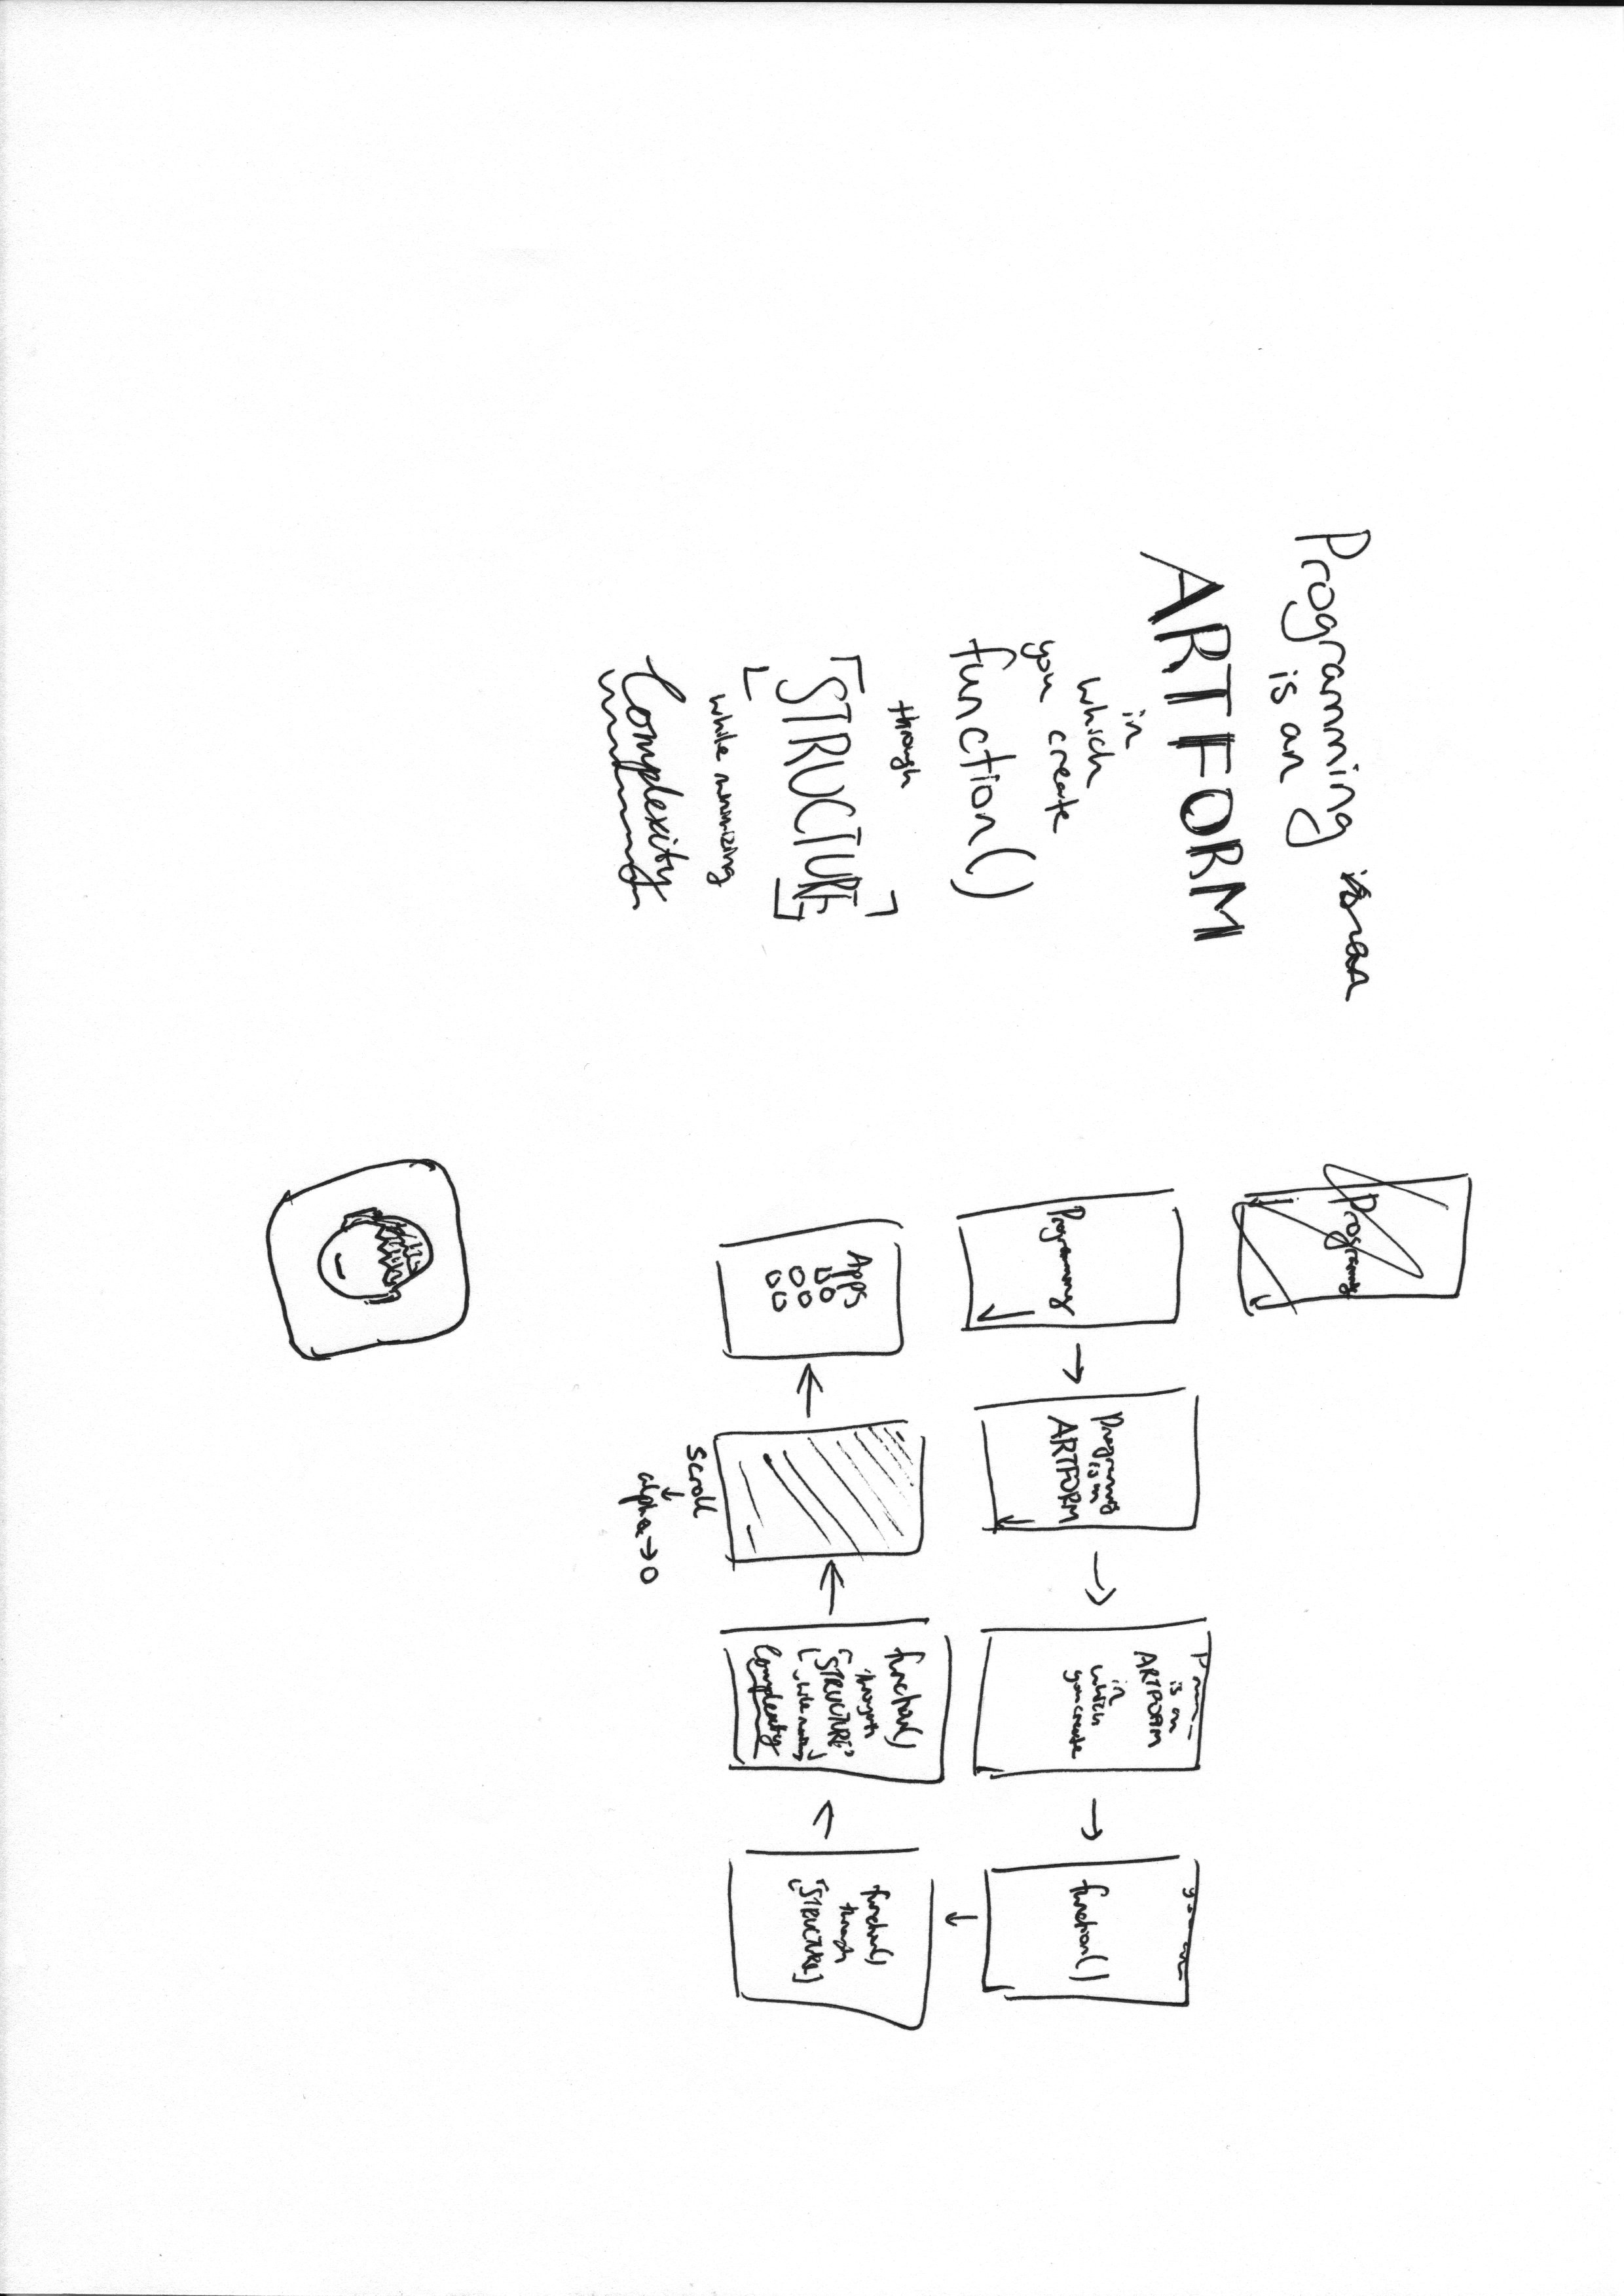 Programming
is an
ARTFORM
in
which
you create
function()
through
「STRUCTURE」
while minimizing
Complexity
Programming
Programming
Programming
is an
ARTFORM
is an
ARTFORM
in
which
you create
function()
function()
through
「STRUCTURE」
function()
through
「STRUCTURE」
while minimizing
Complexity
Apps
scroll
alpha → 0